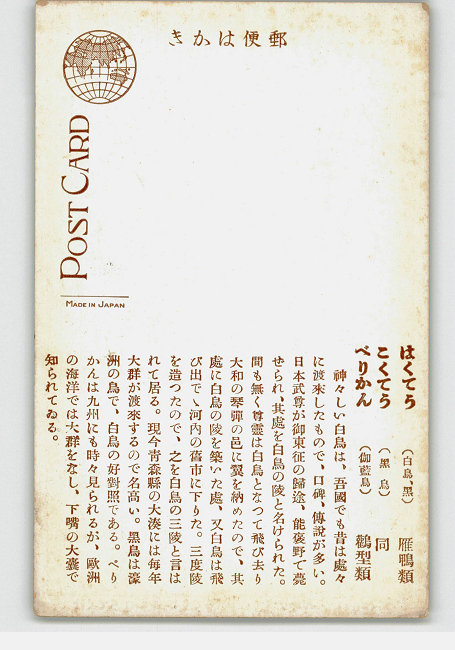 郵便はかき
POST CARD
MADE IN JAPAN
はくてう (白鳥、黒) 雁鴨類
こくてう (黒鳥) 同
ぺりかん (伽藍鳥) 鸛型類
神々しい白鳥は、吾國でも昔は處々
に渡來したもので、口碑、傳說が多い。
日本武尊が御東征の歸途、能褒野で薨
せられ、其處を白鳥の陵と名けられた。
間も無く尊靈は白鳥となつて飛び去り
大和の琴彈の邑に翼を納めたので、其
處に白鳥の陵を築いた處、又白鳥は飛
び出でゝ河內の舊市に下りた。三度陵
を造つたので、之を白鳥の三陵と言は
れて居る。現今青森縣の大湊には每年
大群が渡來するので名高い。黑鳥は濠
洲の鳥で、白鳥の好對照である。ぺり
かんは九州にも時々見られるが、歐洲
の海洋では大群をなし、下嘴の大囊で
知られてゐる。